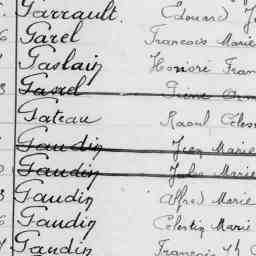 Garrault. Edouard
Garel Francois Marie
Gaslain Honoré Fran
Gasrel
Gateau Raoul Celes
Gaudin Jean Marie
Gaudin Jules Marie
Gaudin Alfred Marie
Gaudin Celestin Marie
Gaudin François